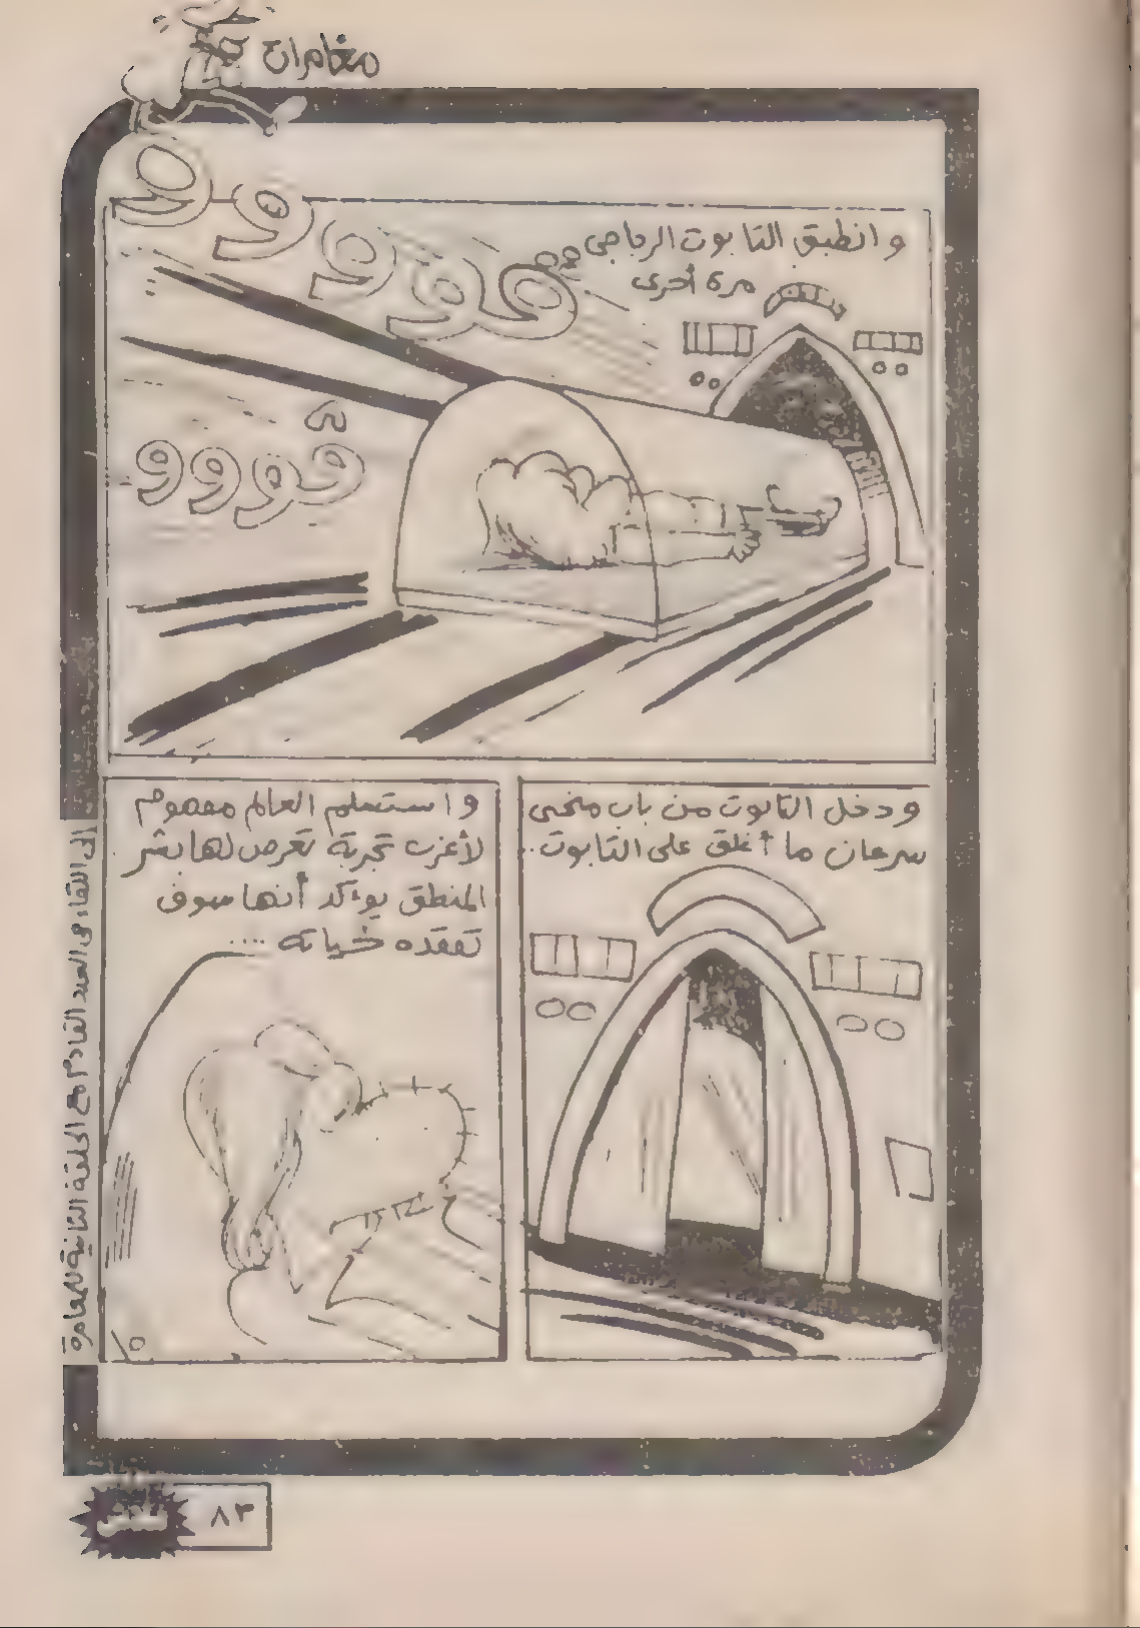 مغامرات
و انطبق التابوت الزجاجى
مرة أخرى
ووووو
ڤوووو
و دخل التابوت من باب منحنى
سرعان ما أغلق على التابوت..
و استسلم العالم مفهوم
لأغرب تجربة تعرض لها بشر
المنطق يؤكد أنها سوف
تفقده حياته ....
إلى اللقاء فى العدد القادم مع الحلقة الثانية للمغامرة
٨٣